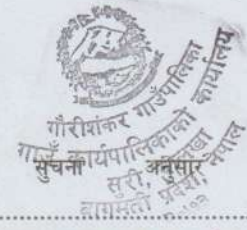 गौरीशंकर गाउँपालिका
गाउँ कार्यपालिकाको कार्यालय
सूचना अनुसार
सुरी, दोलखा
बागमती प्रदेश, नेपाल